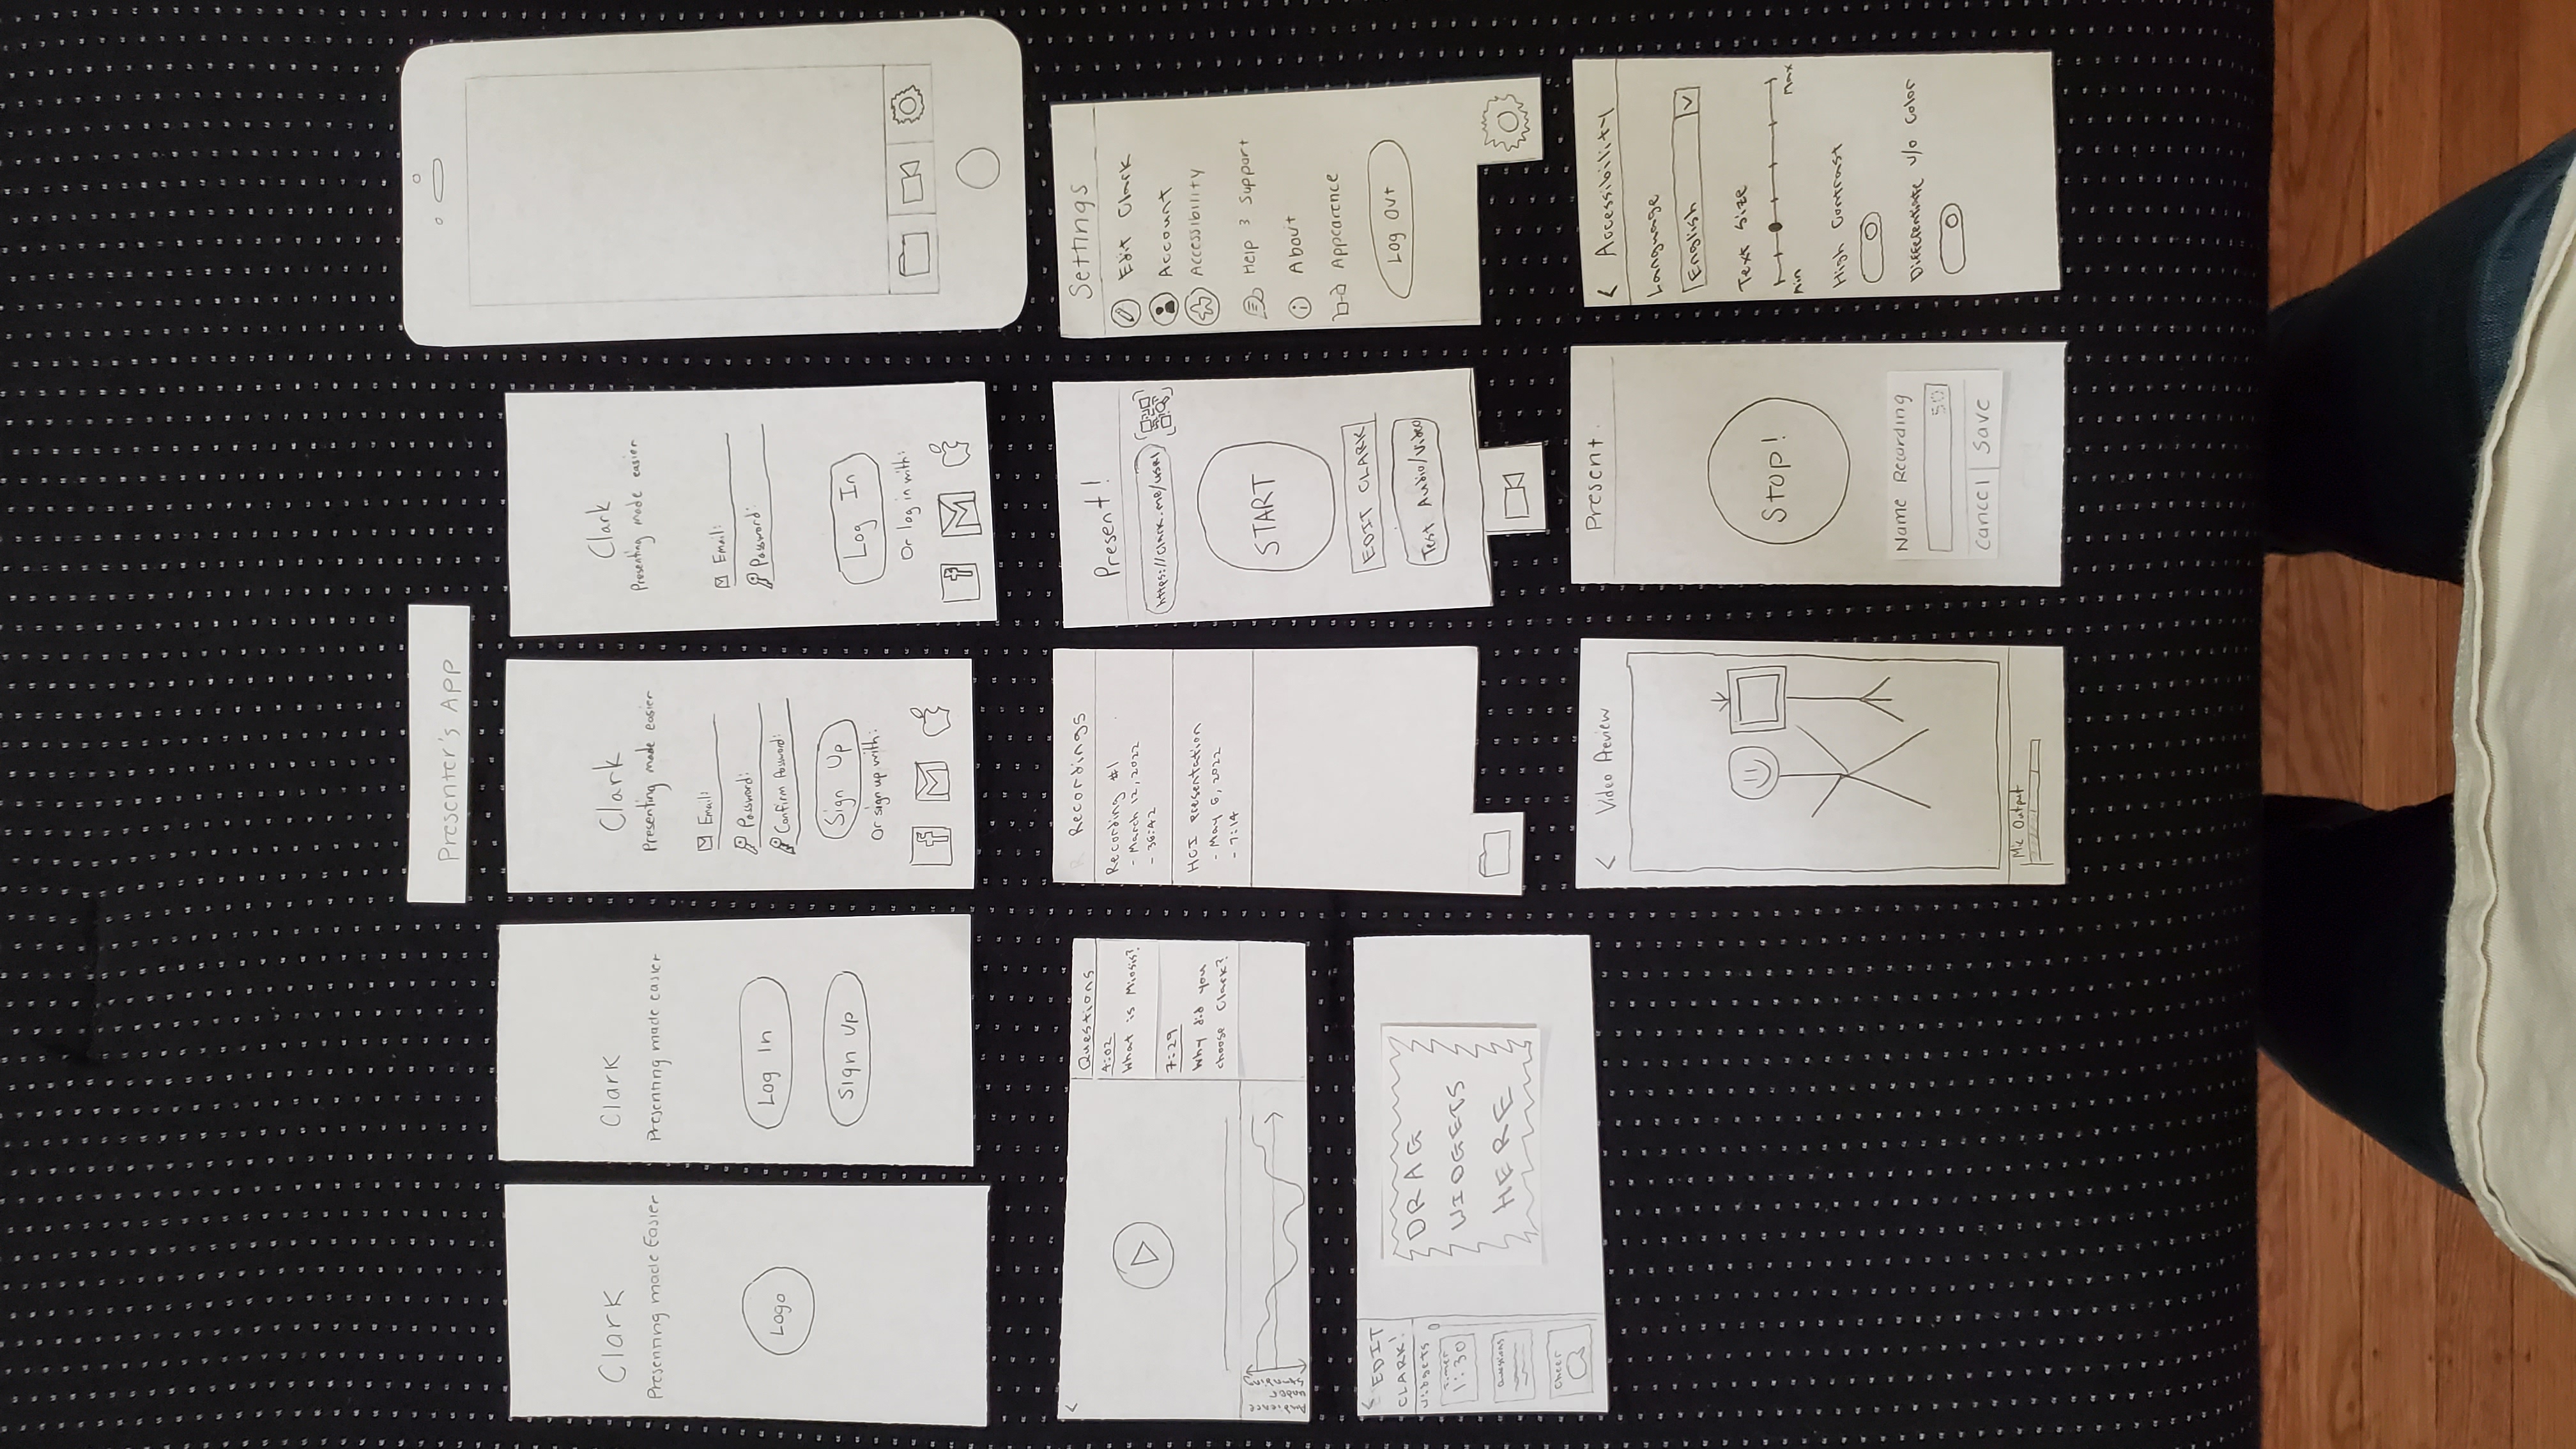 Presenter's App
Clark
Presenting made Easier
Logo
Clark
Presenting made easier
Log In
Sign up
Clark
Presenting made easier
Email:
Password:
Confirm Password:
Sign Up
Or sign up with:
f
M
Clark
Presenting made easier
Email:
Password:
Log In
Or log in with:
f
M
<
Questions
4:02
What is Miosis?
7:29
Why did you
choose Clark?
Audience
under
standing
Recordings
Recording #1
- March 12, 2022
- 36:42
HCI presentation
- May 6, 2022
- 7:14
Present!
https://clark.me/user1
START
EDIT CLARK
Test Audio/Video
Settings
Edit Clark
Account
Accessibility
Help & Support
i About
Appearence
Log Out
< EDIT
CLARK!
Widgets
Timer
1:30
Questions
Cheer
DRAG
WIDGETS
HERE
< Video Preview
Mic Output
Present
Stop!
Name Recording
50
Cancel | Save
< Accessibility
Language
English
Text Size
Min
Max
High Contrast
Differentiate w/o Color